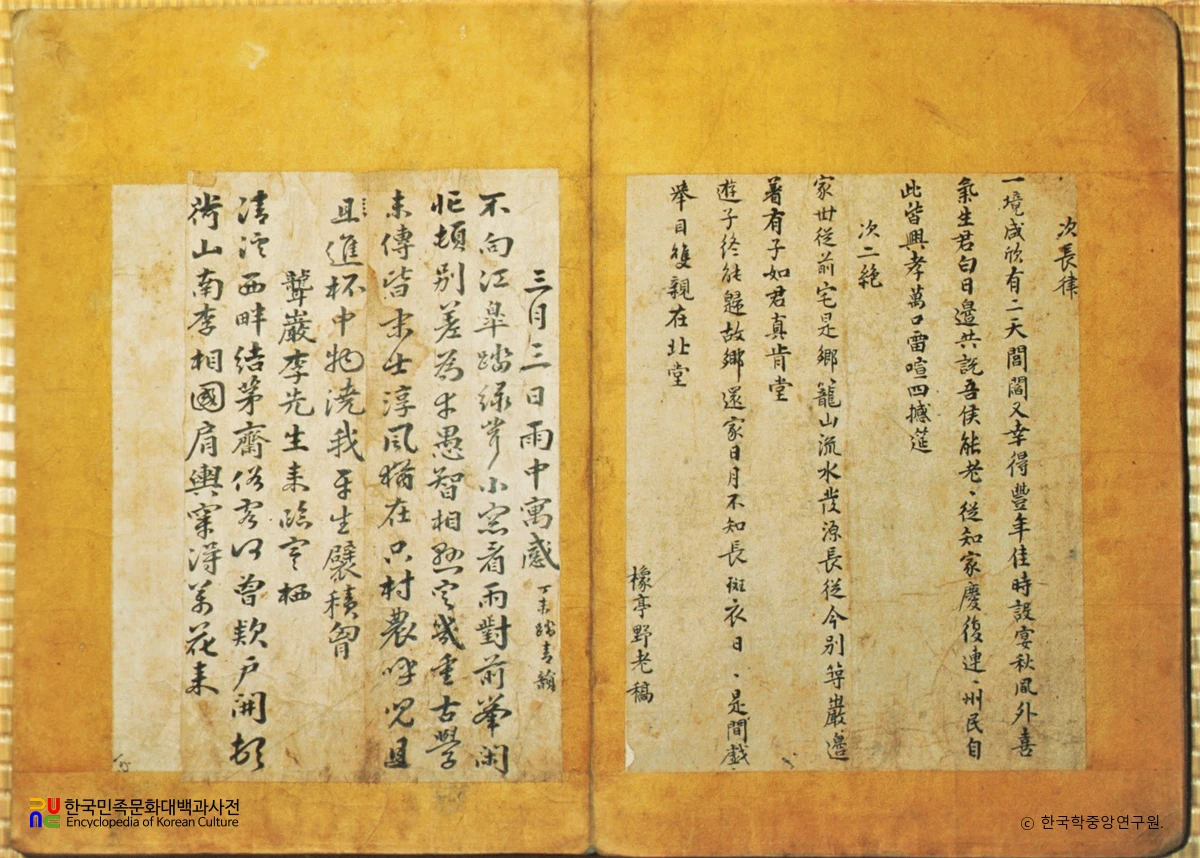 次長律
一境咸欣有二天閭閻又幸得豐年佳時設宴秋風外喜
氣生君白日邊共說吾侯能老〻從知家慶復連〻州民自
此皆興孝萬口雷喧四撼筵
次二絶
家世從前宅是鄉籠山流水發源長從今別巖邊
著有子如君真肯堂
遊子終能歸故鄉還家日月不知長斑衣日〻是間戲
擧目雙親在北堂
橡亭野老稿
三月三日雨中寓感 丁未踏青韻
不向江皐踏綠小窓看雨對前峯閑
忙頓別差為幸愚智相懸定幾重古學
未傳皆末士淳風猶在只村農呼兒且
且進杯中物澆我平生襞積胷
聾巖李先生來臨寒栖
清溪西畔結茅齋俗客何曾款戶開頓
荷山南李相國肩輿穿得萬花來
한국민족문화대백과사전
Encyclopedia of Korean Culture
ⓒ 한국학중앙연구원.